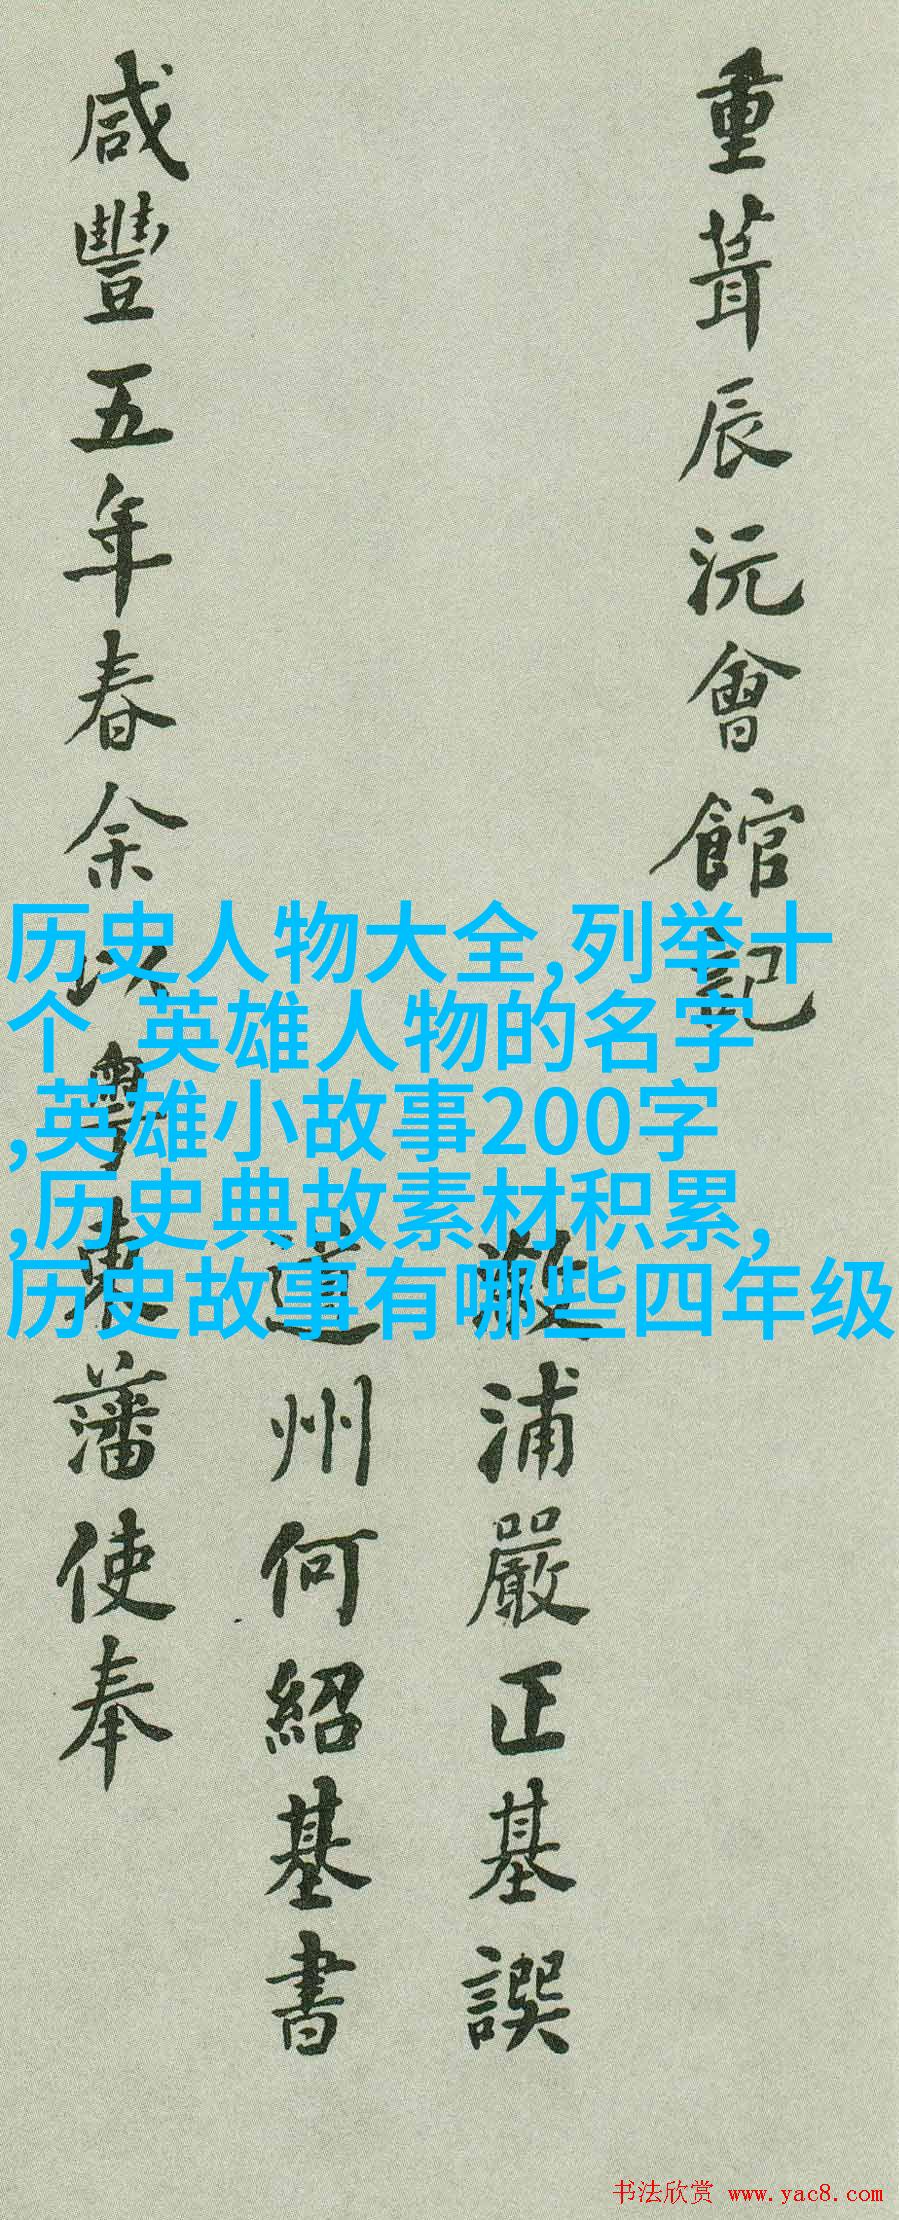 重葺辰沅會館記
漵浦嚴正基譔
道州何紹基書
咸豐五年春余以粵東藩使奉
历史人物大全,列举十
个  英雄人物的名字
,英雄小故事200字
,历史典故素材积累,
历史故事有哪些四年级
书法欣赏 www.yac8.com